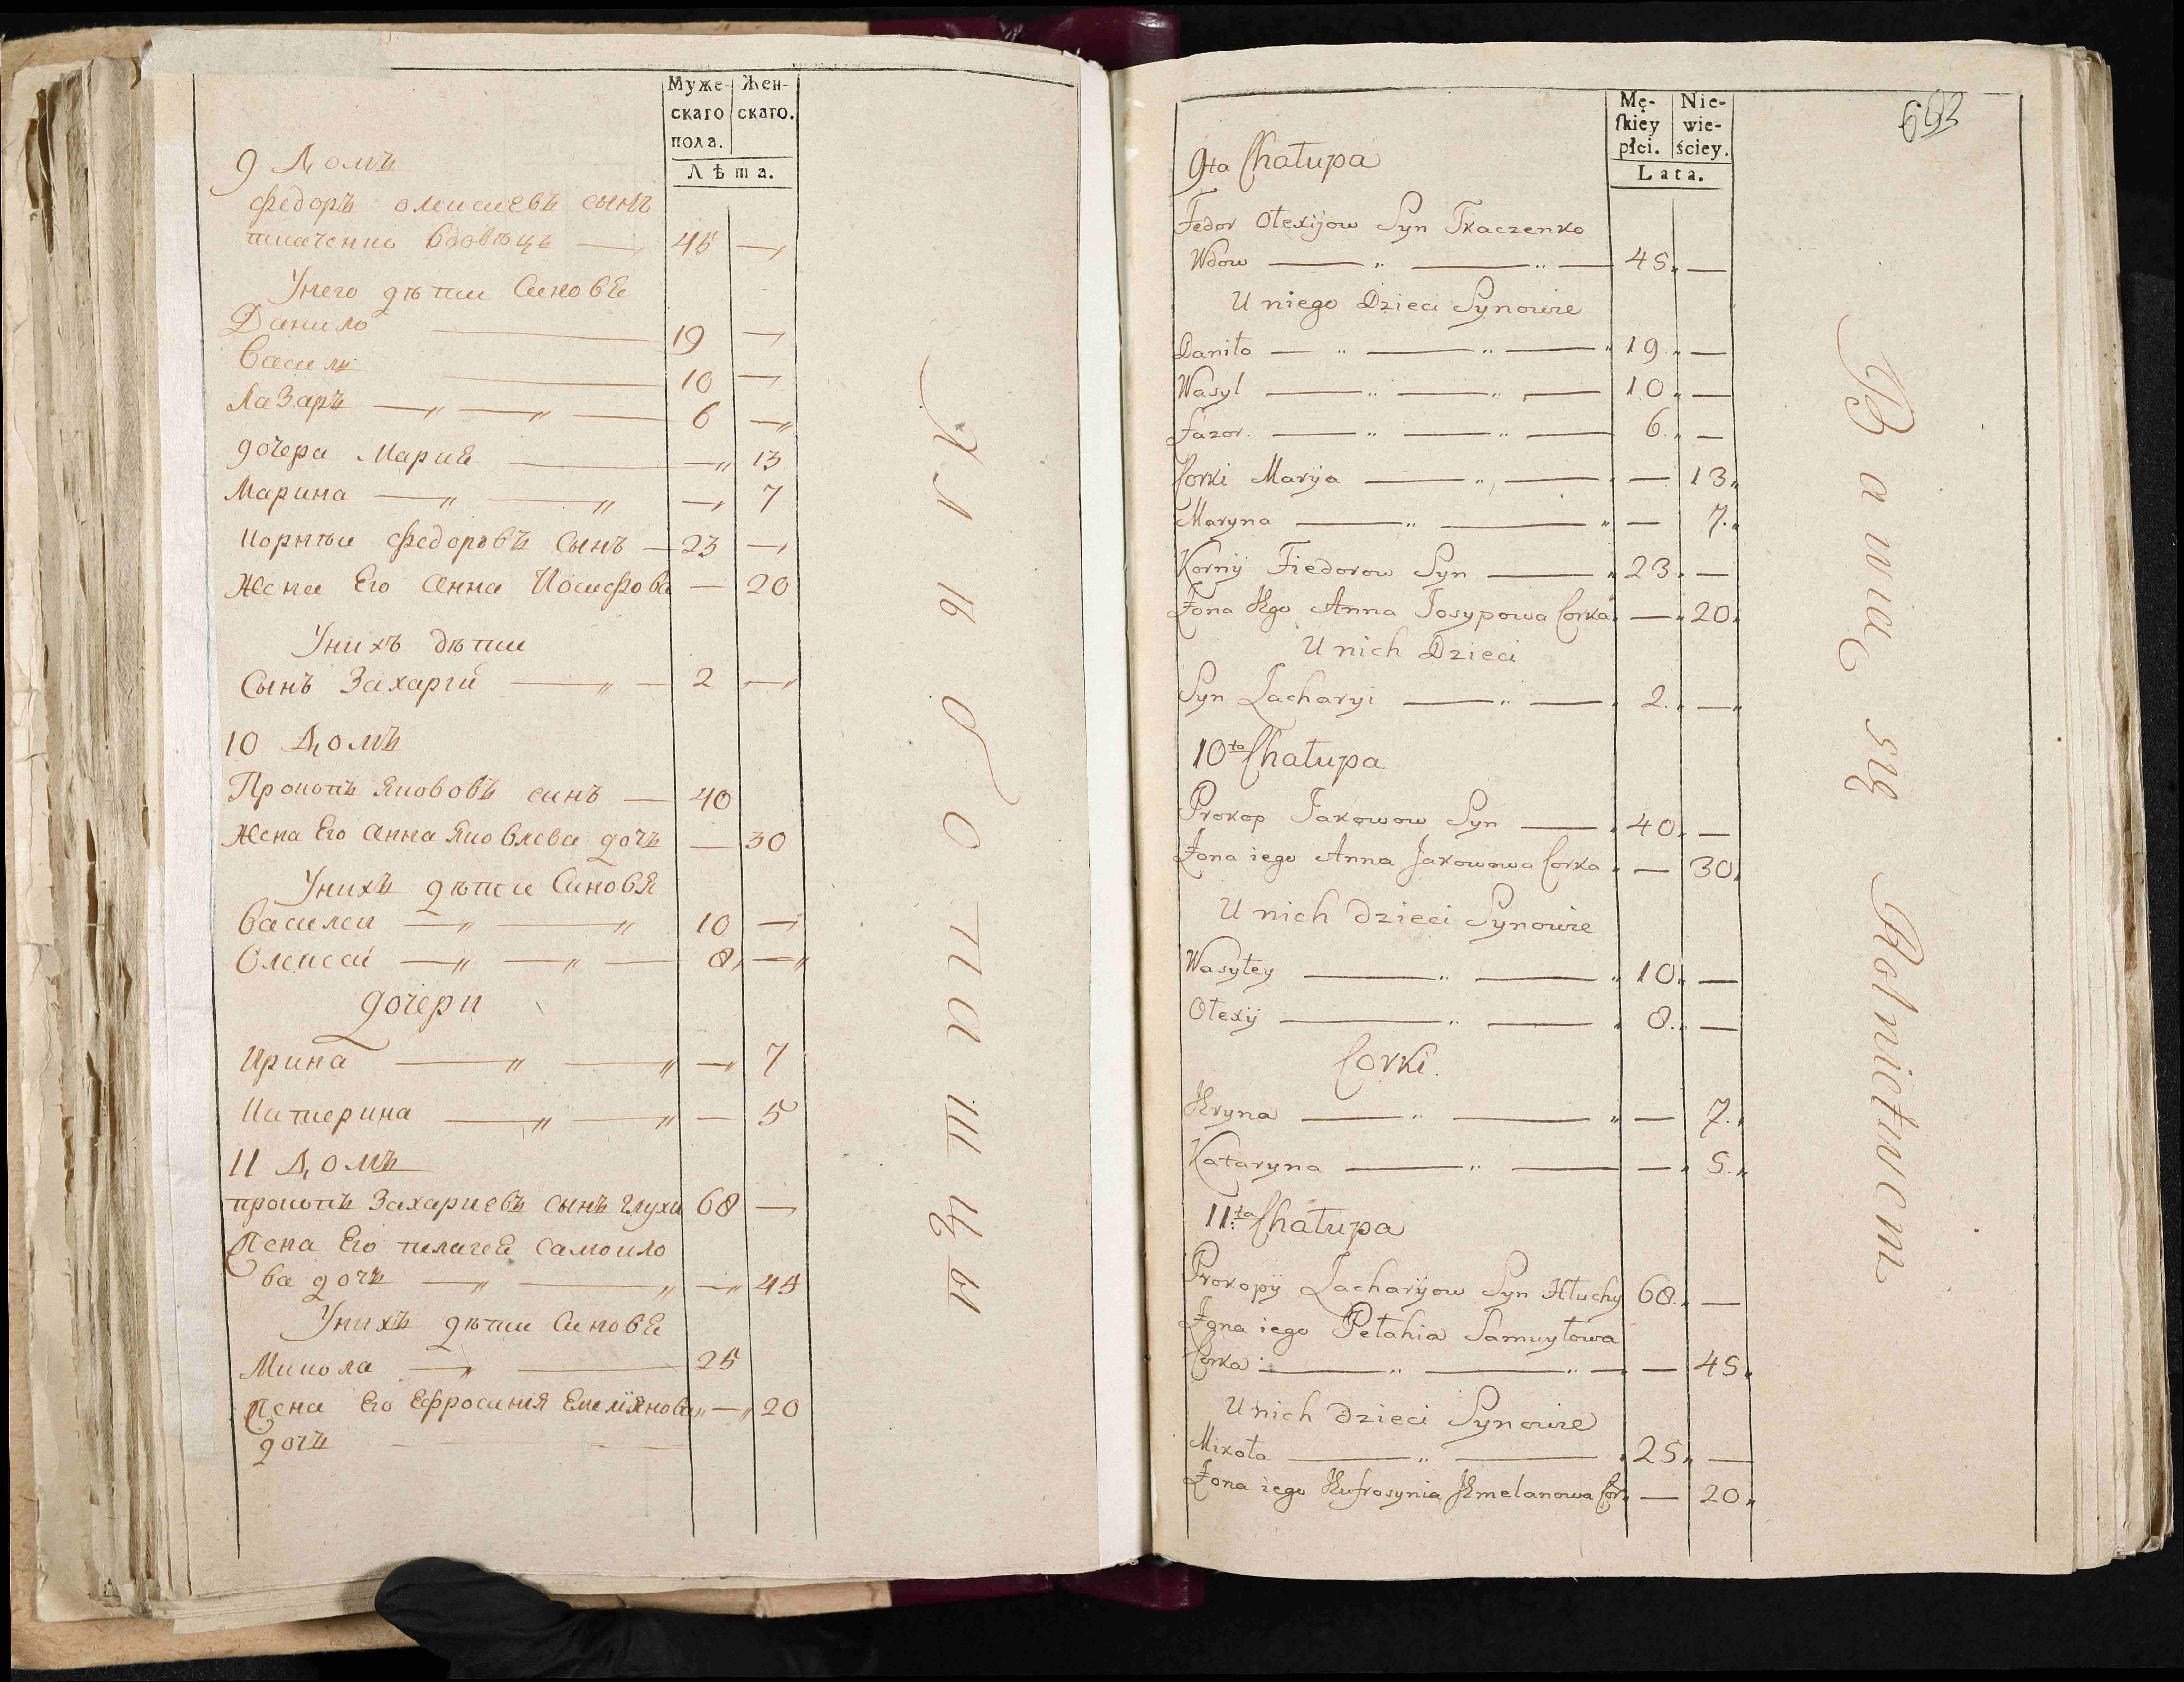 Муже-
скаго
пола.
Жен-
скаго.
Лѣта.
9 Домъ
Федоръ олексиевъ сынъ
ткаченко вдовѣцъ — 45 —
Унего дѣти Синовя
Данило — 19 —
Василь — 10 —
Лазаръ — „ — „ — 6 —
дочери Мария — — 13
Марина — „ — „ — 7
Корнѣи Федоровъ Сынъ — 23 —
Жена Его Анна Иосифова — 20
Унихъ дѣти
Сынъ Захарій — „ — 2 —
10 Домъ
Прокопъ Якововъ синъ — 40
Жена Его Анна Яковлева дочъ — 30
Унихъ дѣти Синовя
Василеи — „ — „ 10 —
Олексеи — „ — „ — 8 —
дочери
Ирина — „ — „ — 7
Катерина — „ — „ — 5
11 Домъ
прокопъ Захариевъ сынъ Глухи 68 —
Жена Его пелагея самоило
ва дочъ — „ — „ — 45
Унихъ дѣти Синовя
Микола — „ — 25
Жена Его Ефросиния Емелиянова „ — „ 20
дочъ
Хлѣбопашцы
693
Mę-
ſkiey
płci.
Nie-
wie-
ściey.
Lata.
9ta Chałupa
Fedor Ołexijow Syn Tkaczenko
Wdow — „ — „ — 45 „ —
U niego Dzieci Synowie
Daniło — „ — „ — „ 19 „ —
Wasyl — „ — „ — 10 „ —
Łazor. — „ — „ — 6. „ —
Corki Maryja — „ — „ — 13 „
Maryna — „ — „ — 7. „
Korniy Fiedorow Syn — „ 23 „ —
Żona Jego Anna Josypowa Corka — „ 20 „
U nich Dzieci
Syn Zacharyi — „ — „ 2. „ — „
10ta Chałupa
Prokop Jakowow Syn — „ 40 „ —
Żona iego Anna Jakowowa Corka „ — 30 „
U nich dzieci Synowie
Wasyley — „ — „ 10 „ —
Ołexiy — „ — „ 8. „ —
Corki.
Jryna — „ — „ — 7. „
Kataryna — „ — — „ 5. „
11ta Chałupa
Prokopiy Zacharyjow Syn Hłuchy 68. „ —
Żona iego Pełahia Samuyłowa
Corka — „ — „ — — 45 „
U nich dzieci Synowie
Mikoła — „ — „ 25 „ —
Żona iego Jeufrosynia Jemelanowa Cor: — 20 „
Bawią się Rolnictwem